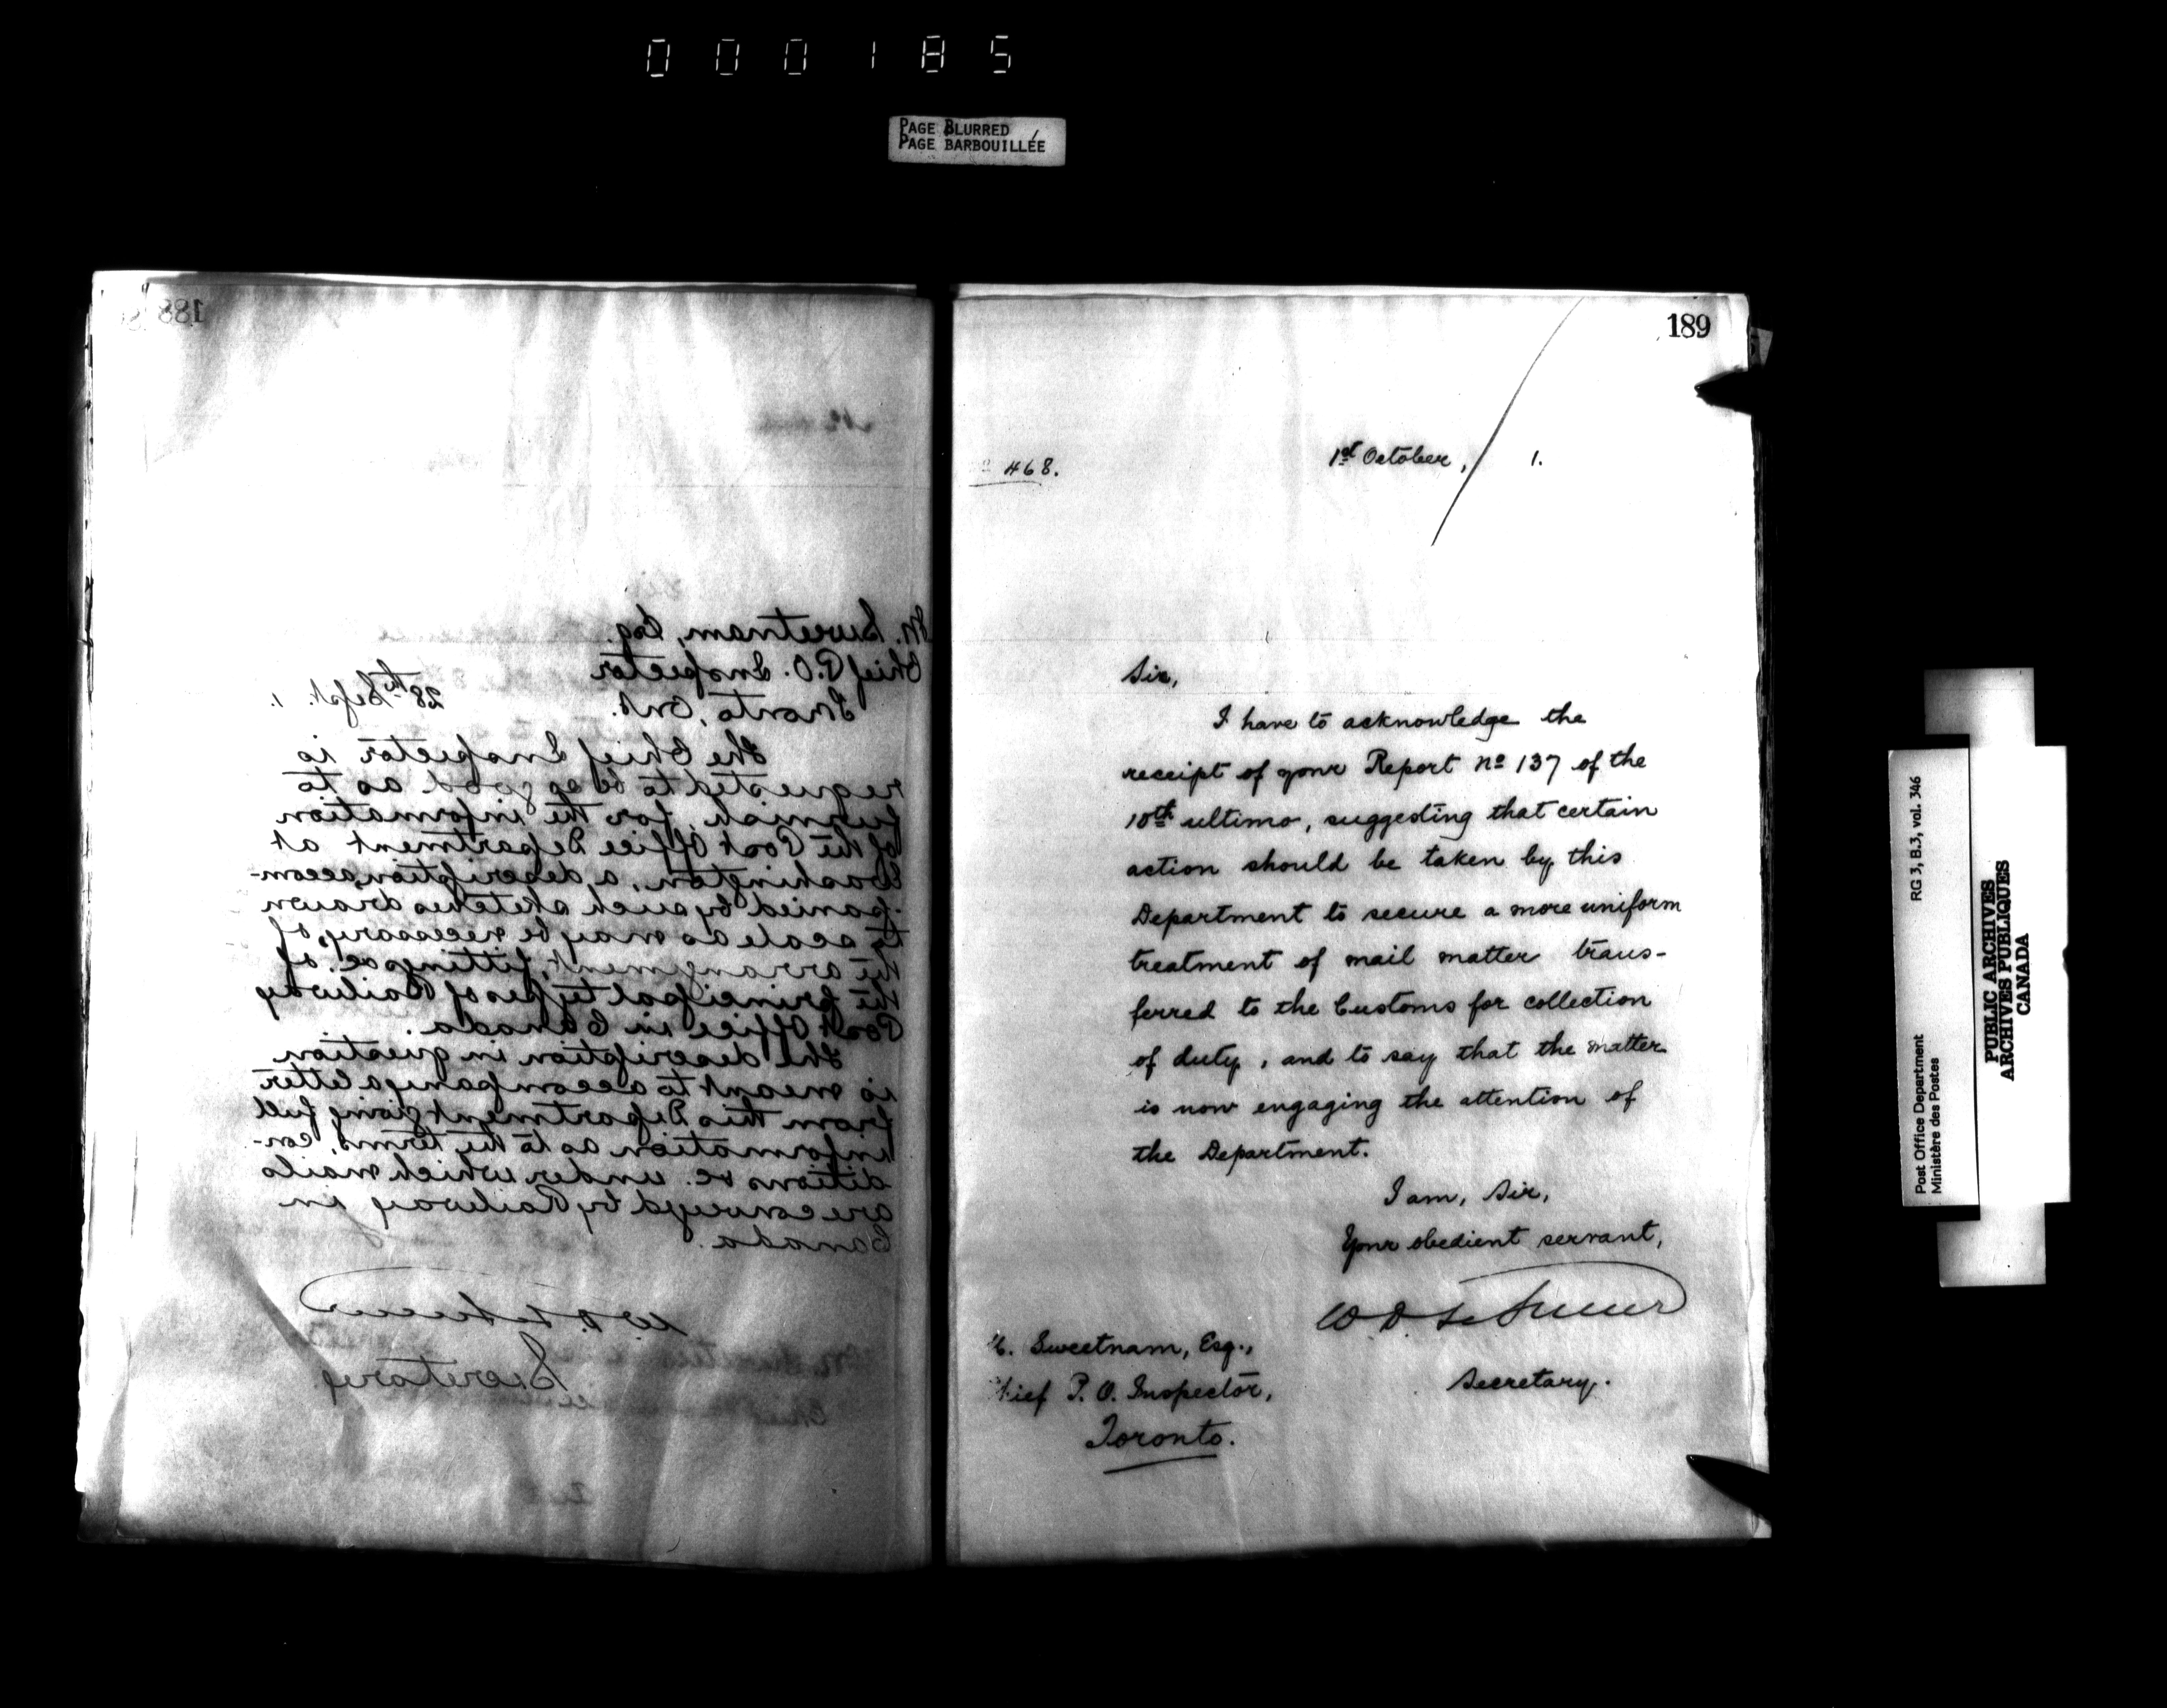 000185
PAGE BLURRED
PAGE BARBOUILLÉE
188
M. Sweetnam, Esq.
Chief P.O. Inspector
Toronto, Ont.
28th Sept. 1.
The Chief Inspector is
requested to be so good as to
furnish, for the information
of the Post Office Department at
Washington, a description, accom-
panied by such sketches drawn
to scale as may be necessary, of
the arrangement, fittings &c. of
the principal types of Railway
Post Office in Canada.
The description in question
is meant to accompany a letter
from this Department giving full
information as to the terms, con-
ditions &c. under which mails
are conveyed by Railway in
Canada.
Secretary
189
468.
1st October, 1.
Sir,
I have to acknowledge the
receipt of your Report No 137 of the
10th ultimo, suggesting that certain
action should be taken by this
Department to secure a more uniform
treatment of mail matter trans-
ferred to the Customs for collection
of duty, and to say that the matter
is now engaging the attention of
the Department.
I am, Sir,
Your obedient servant,
Secretary.
Sweetnam, Esq.,
Chief P. O. Inspector,
Toronto.
Post Office Department RG 3, B.3, vol. 346
Ministère des Postes
PUBLIC ARCHIVES
ARCHIVES PUBLIQUES
CANADA